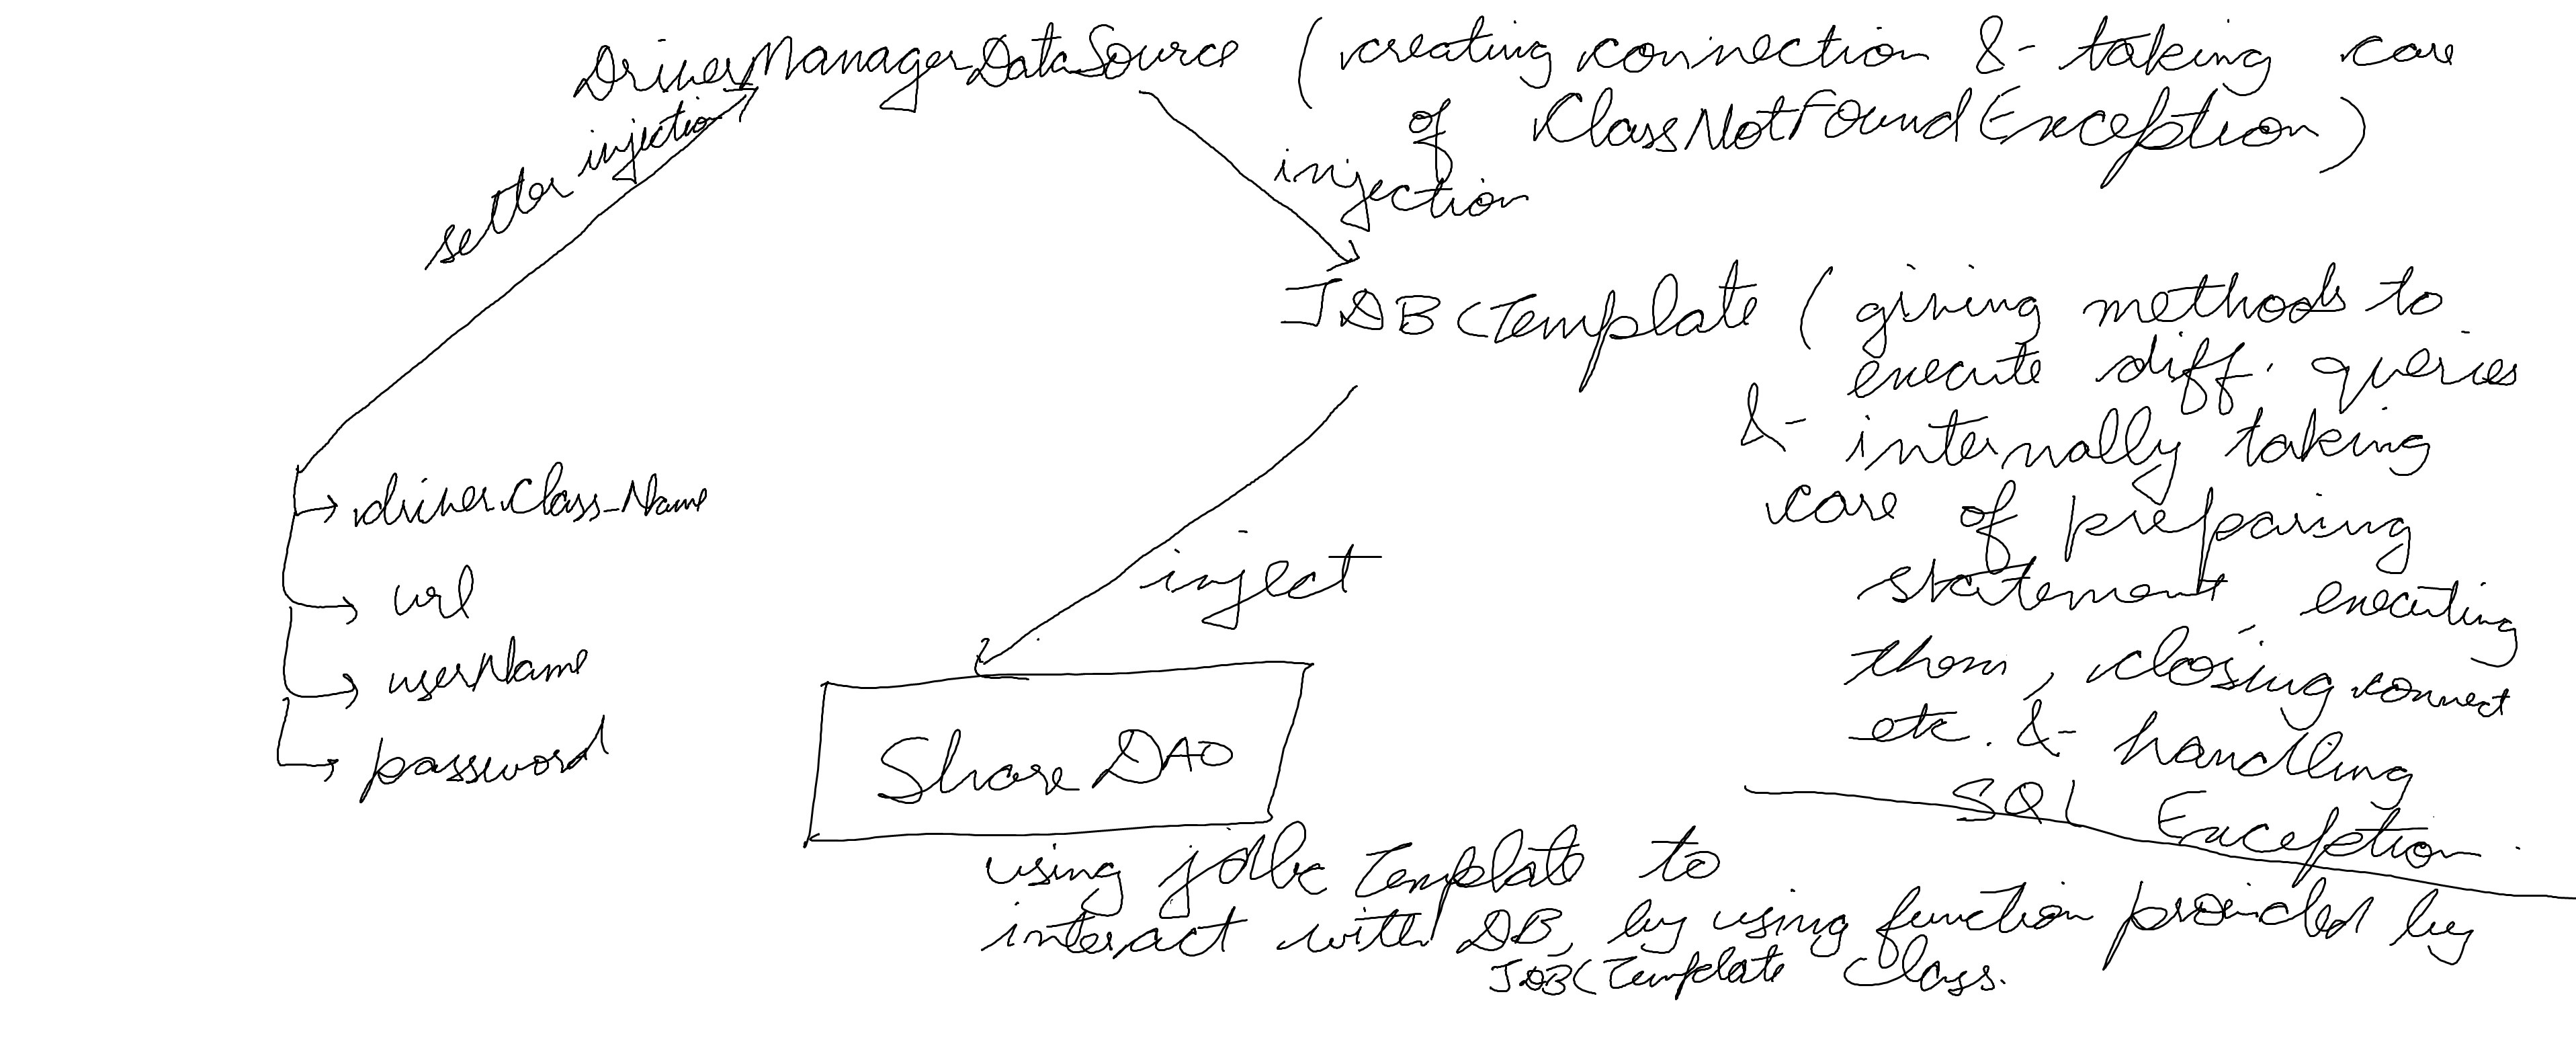 DriverManagerDataSource (creating connection & taking care
of ClassNotFoundException)
setter injection
injection
JDBCTemplate (giving methods to
execute diff. queries
& internally taking
care of preparing
statement, executing
them, closing connect
etc. & handling
SQL Exception.
inject
driverClass_Name
url
userName
password
ShareDAO
using jdbc Template to
interact with DB, by using function provided by
JDBCTemplate Class.